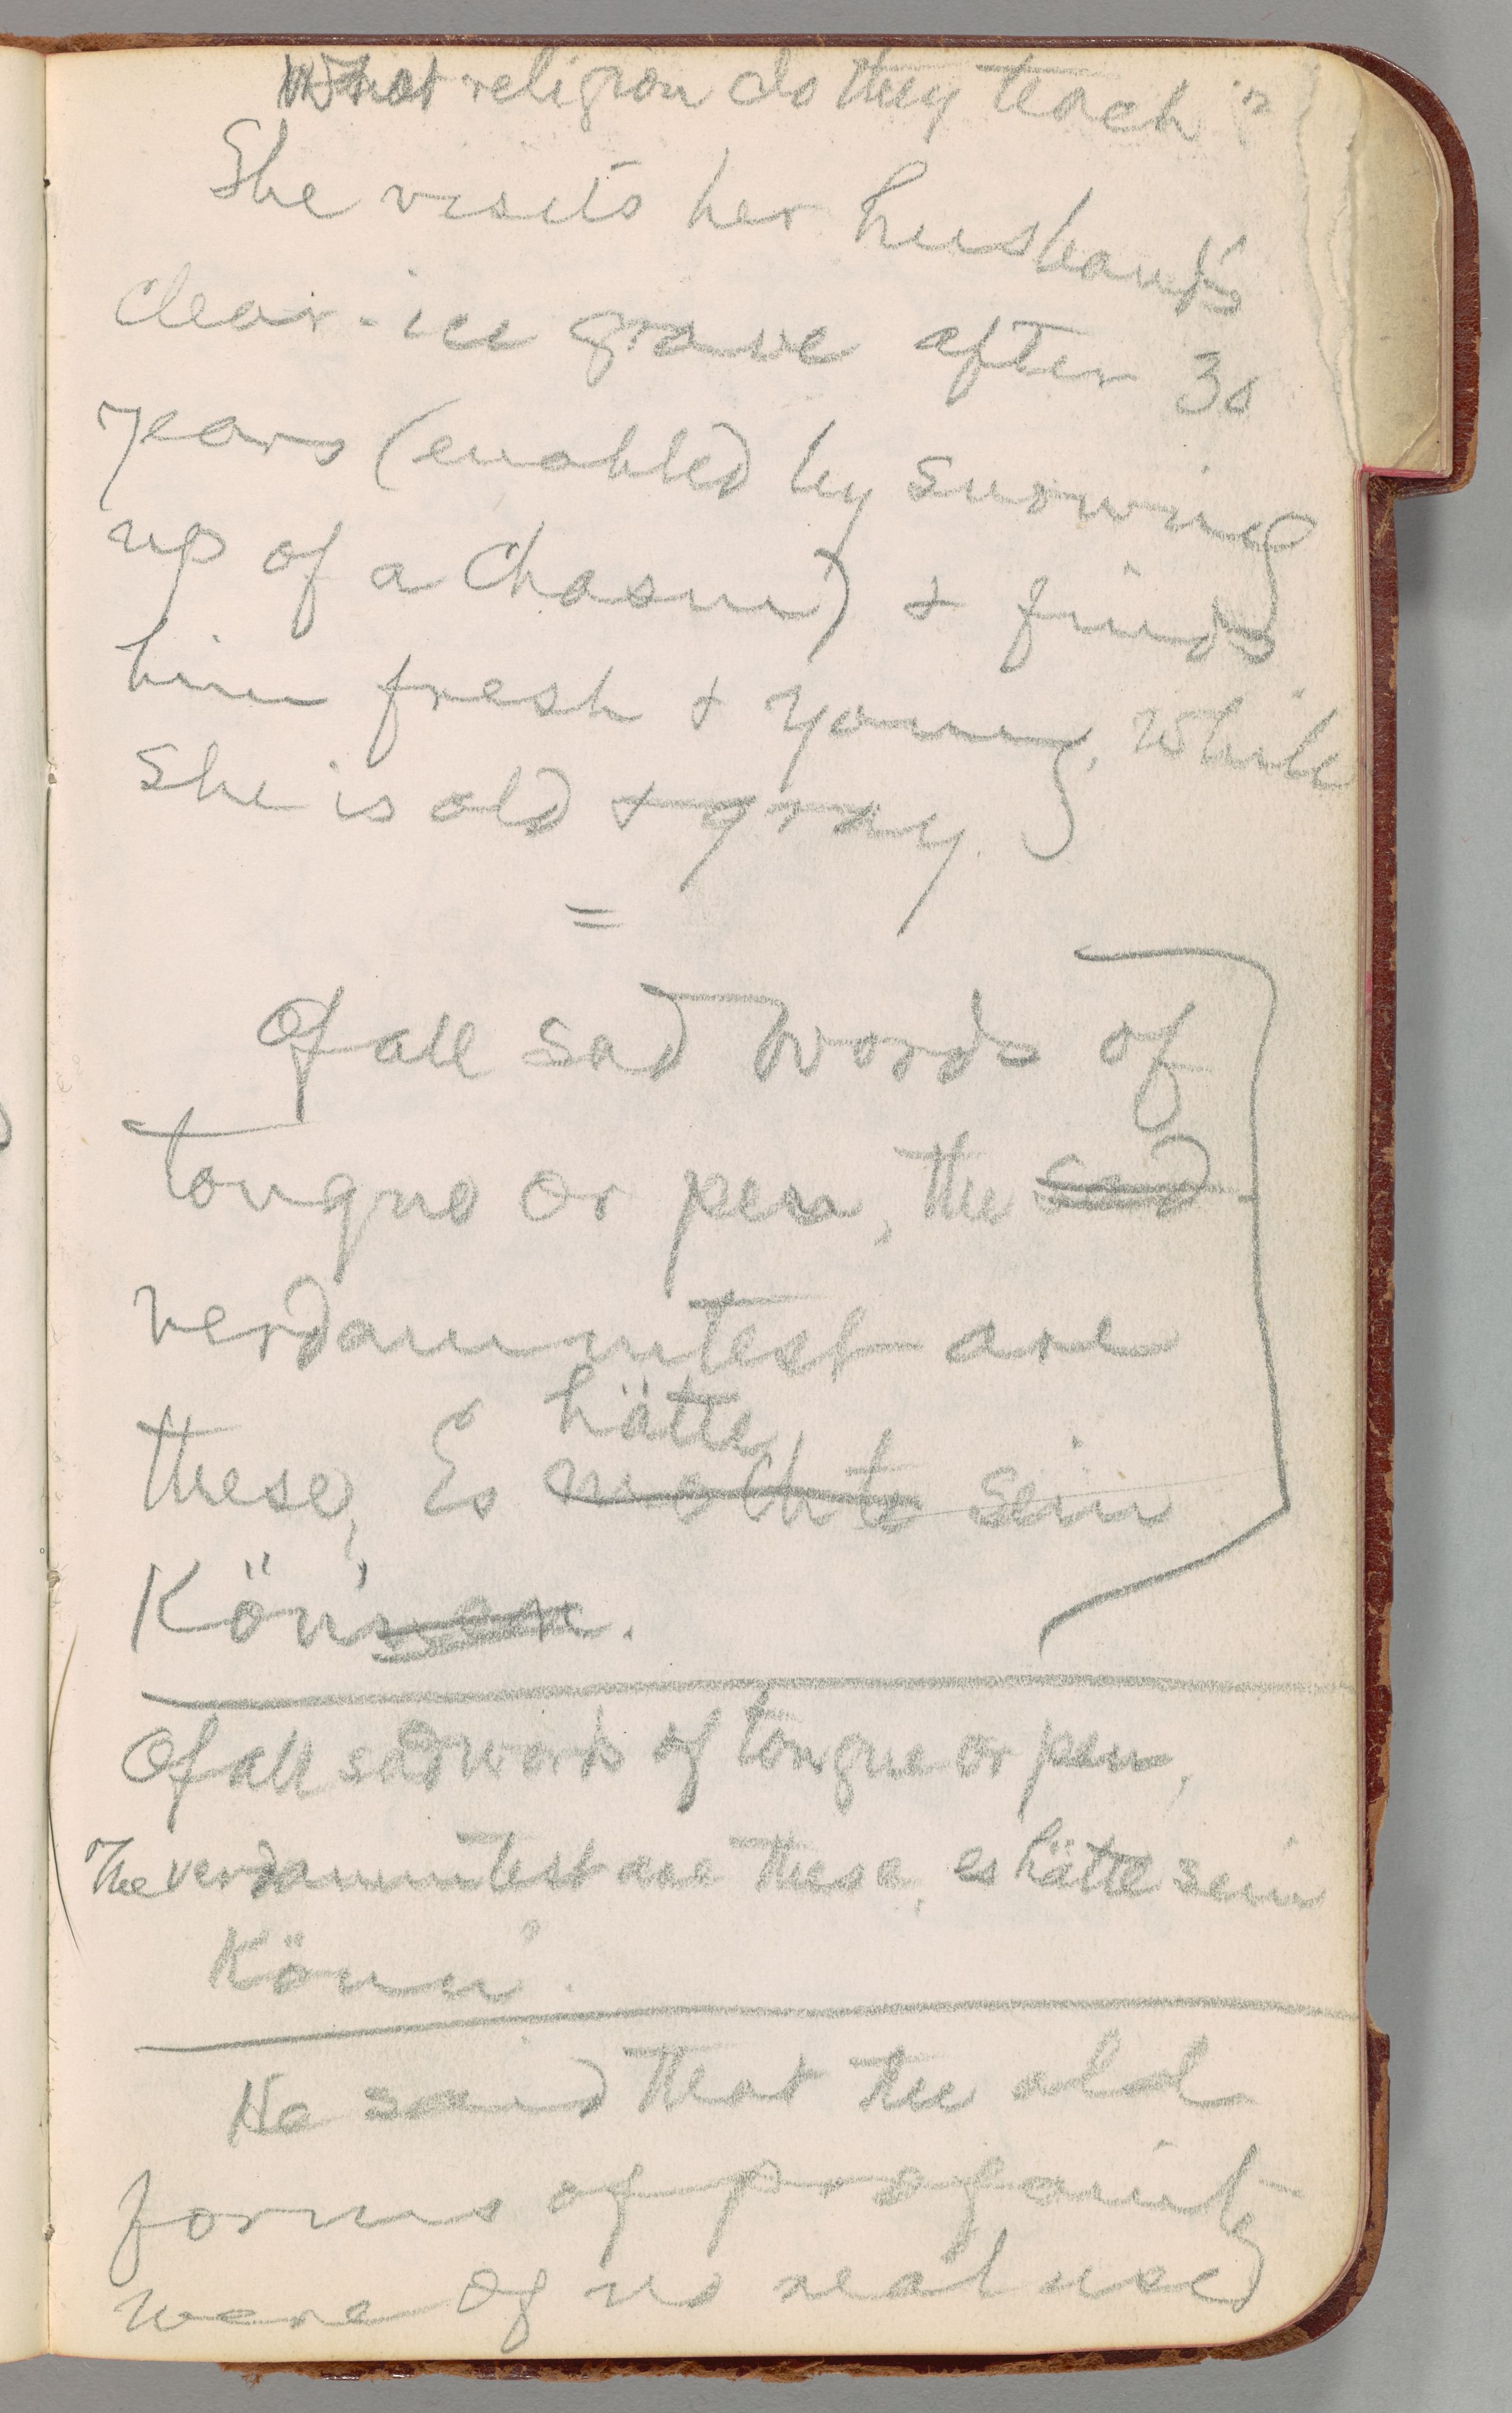 What religion do they teach?
She visits her husband's
clear-ice grave after 30
years (enabled by snowing
up of a chasm) & finds
him fresh & young, while
she is old & gray.
=
Of all sad words of
tongue or pen, the sad
verdammtest are
these, Es mochte sein
hätte
Können.
Of all sad words of tongue or pen,
The verdammtest are these, es hätte sein
Könn'.
He said that the old
forms of profanity
were of no real use